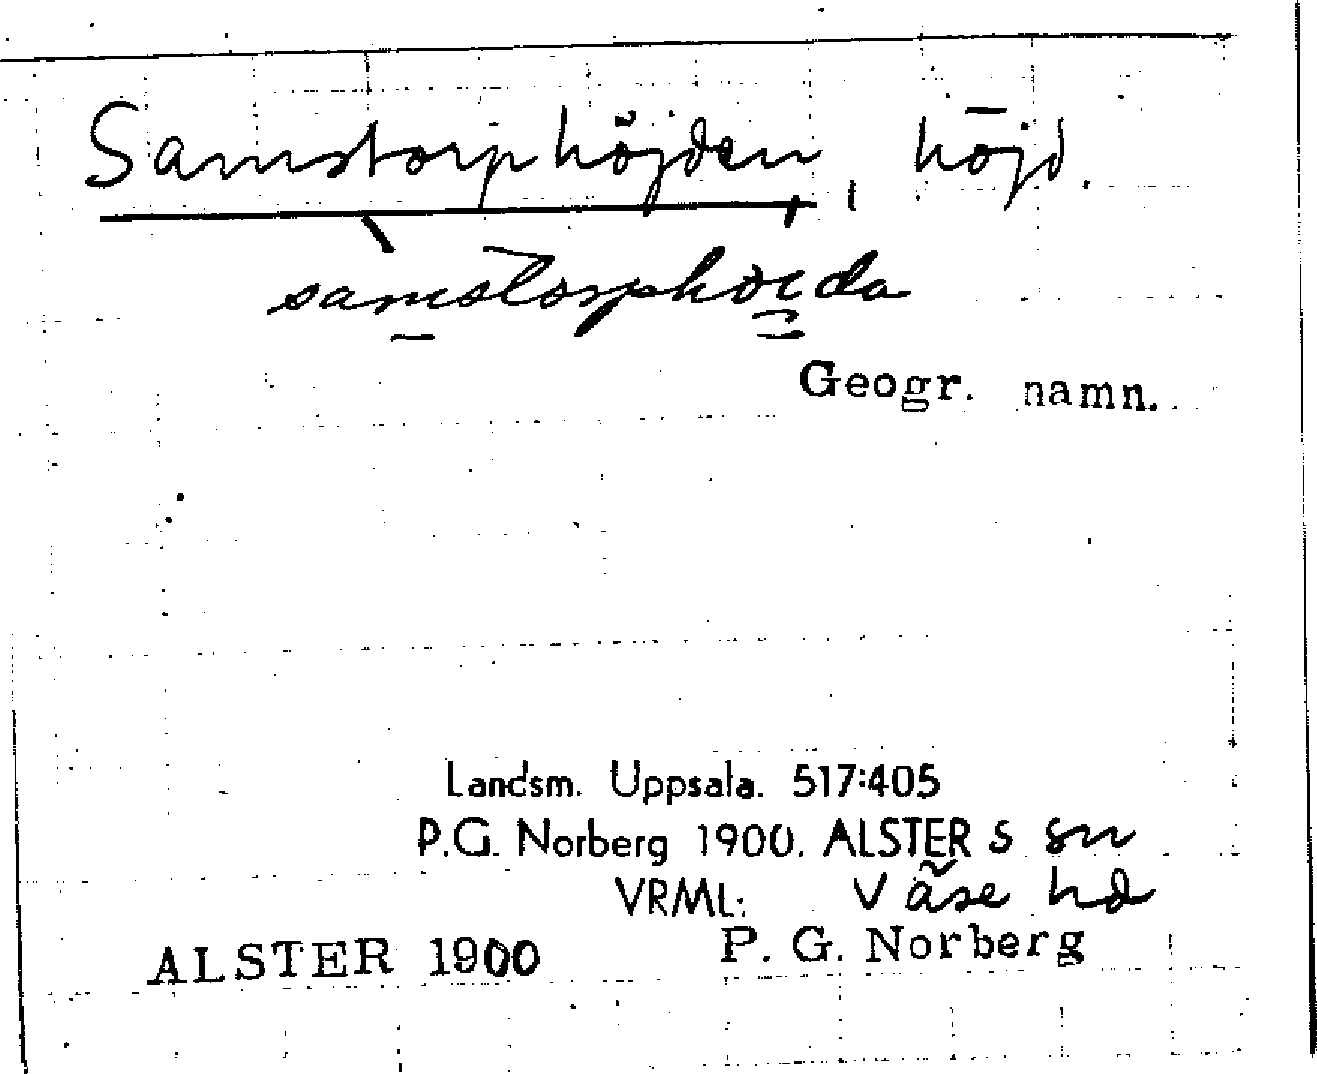 Samstorphöjden, höjd.
samstorphöida
Geogr. namn.
Landsm. Uppsala. 517:405
P.G. Norberg 1900. ALSTER s sn
VRML. Väse hd
ALSTER 1900 P. G. Norberg